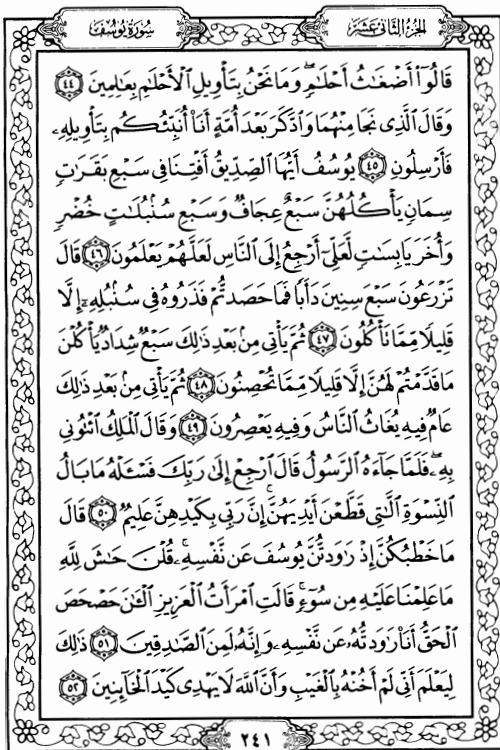 سُورَةُ يُوسُفَ
الجُزْءُ الثَّانِي عَشَرَ
قَالُوٓا۟ أَضْغَـٰثُ أَحْلَـٰمٍۢ ۖ وَمَا نَحْنُ بِتَأْوِيلِ ٱلْأَحْلَـٰمِ بِعَـٰلِمِينَ ٤٤
وَقَالَ ٱلَّذِى نَجَا مِنْهُمَا وَٱدَّكَرَ بَعْدَ أُمَّةٍ أَنَا۠ أُنَبِّئُكُم بِتَأْوِيلِهِۦ
فَأَرْسِلُونِ ٤٥ يُوسُفُ أَيُّهَا ٱلصِّدِّيقُ أَفْتِنَا فِى سَبْعِ بَقَرَٰتٍۢ
سِمَانٍۢ يَأْكُلُهُنَّ سَبْعٌ عِجَافٌۭ وَسَبْعِ سُنۢبُلَـٰتٍ خُضْرٍۢ
وَأُخَرَ يَابِسَـٰتٍۢ لَّعَلِّىٓ أَرْجِعُ إِلَى ٱلنَّاسِ لَعَلَّهُمْ يَعْلَمُونَ ٤٦ قَالَ
تَزْرَعُونَ سَبْعَ سِنِينَ دَأَبًۭا فَمَا حَصَدتُّمْ فَذَرُوهُ فِى سُنۢبُلِهِۦٓ إِلَّا
قَلِيلًۭا مِّمَّا تَأْكُلُونَ ٤٧ ثُمَّ يَأْتِى مِنۢ بَعْدِ ذَٰلِكَ سَبْعٌۭ شِدَادٌۭ يَأْكُلْنَ
مَا قَدَّمْتُمْ لَهُنَّ إِلَّا قَلِيلًۭا مِّمَّا تُحْصِنُونَ ٤٨ ثُمَّ يَأْتِى مِنۢ بَعْدِ ذَٰلِكَ
عَامٌۭ فِيهِ يُغَاثُ ٱلنَّاسُ وَفِيهِ يَعْصِرُونَ ٤٩ وَقَالَ ٱلْمَلِكُ ٱئْتُونِى
بِهِۦ ۖ فَلَمَّا جَآءَهُ ٱلرَّسُولُ قَالَ ٱرْجِعْ إِلَىٰ رَبِّكَ فَسْـَٔلْهُ مَا بَالُ
ٱلنِّسْوَةِ ٱلَّـٰتِى قَطَّعْنَ أَيْدِيَهُنَّ ۚ إِنَّ رَبِّى بِكَيْدِهِنَّ عَلِيمٌۭ ٥٠ قَالَ
مَا خَطْبُكُنَّ إِذْ رَٰوَدتُّنَّ يُوسُفَ عَن نَّفْسِهِۦ ۚ قُلْنَ حَـٰشَ لِلَّهِ
مَا عَلِمْنَا عَلَيْهِ مِن سُوٓءٍۢ ۚ قَالَتِ ٱمْرَأَتُ ٱلْعَزِيزِ ٱلْـَٔـٰنَ حَصْحَصَ
ٱلْحَقُّ أَنَا۠ رَٰوَدتُّهُۥ عَن نَّفْسِهِۦ وَإِنَّهُۥ لَمِنَ ٱلصَّـٰدِقِينَ ٥١ ذَٰلِكَ
لِيَعْلَمَ أَنِّى لَمْ أَخُنْهُ بِٱلْغَيْبِ وَأَنَّ ٱللَّهَ لَا يَهْدِى كَيْدَ ٱلْخَآئِنِينَ ٥٢
٢٤١